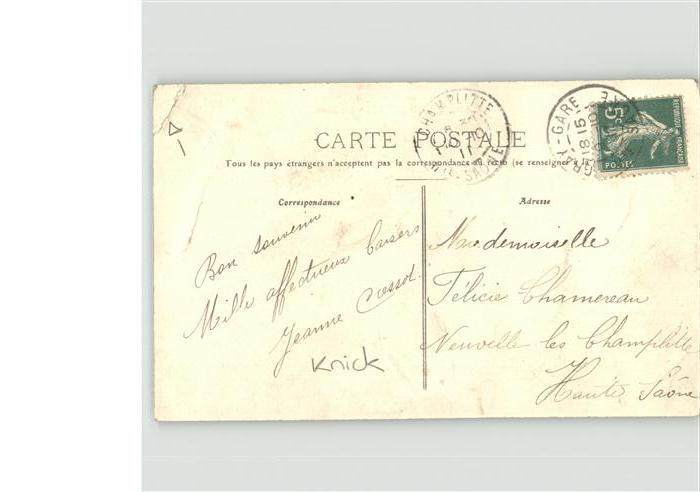 CHAMPLITTE
HTE-SAÔNE
GRAY-GARE
5c
REPUBLIQUE FRANÇAISE
POSTES
CARTE POSTALE
Tous les pays étrangers n'acceptent pas la correspondance au recto (se renseigner à la
Correspondance
Adresse
Bon souvenir
Mille affectueux baisers
Jeanne
Knick
Mademoiselle
Félicie Chamereau
Neuvelle les Champlitte
Haute Saône